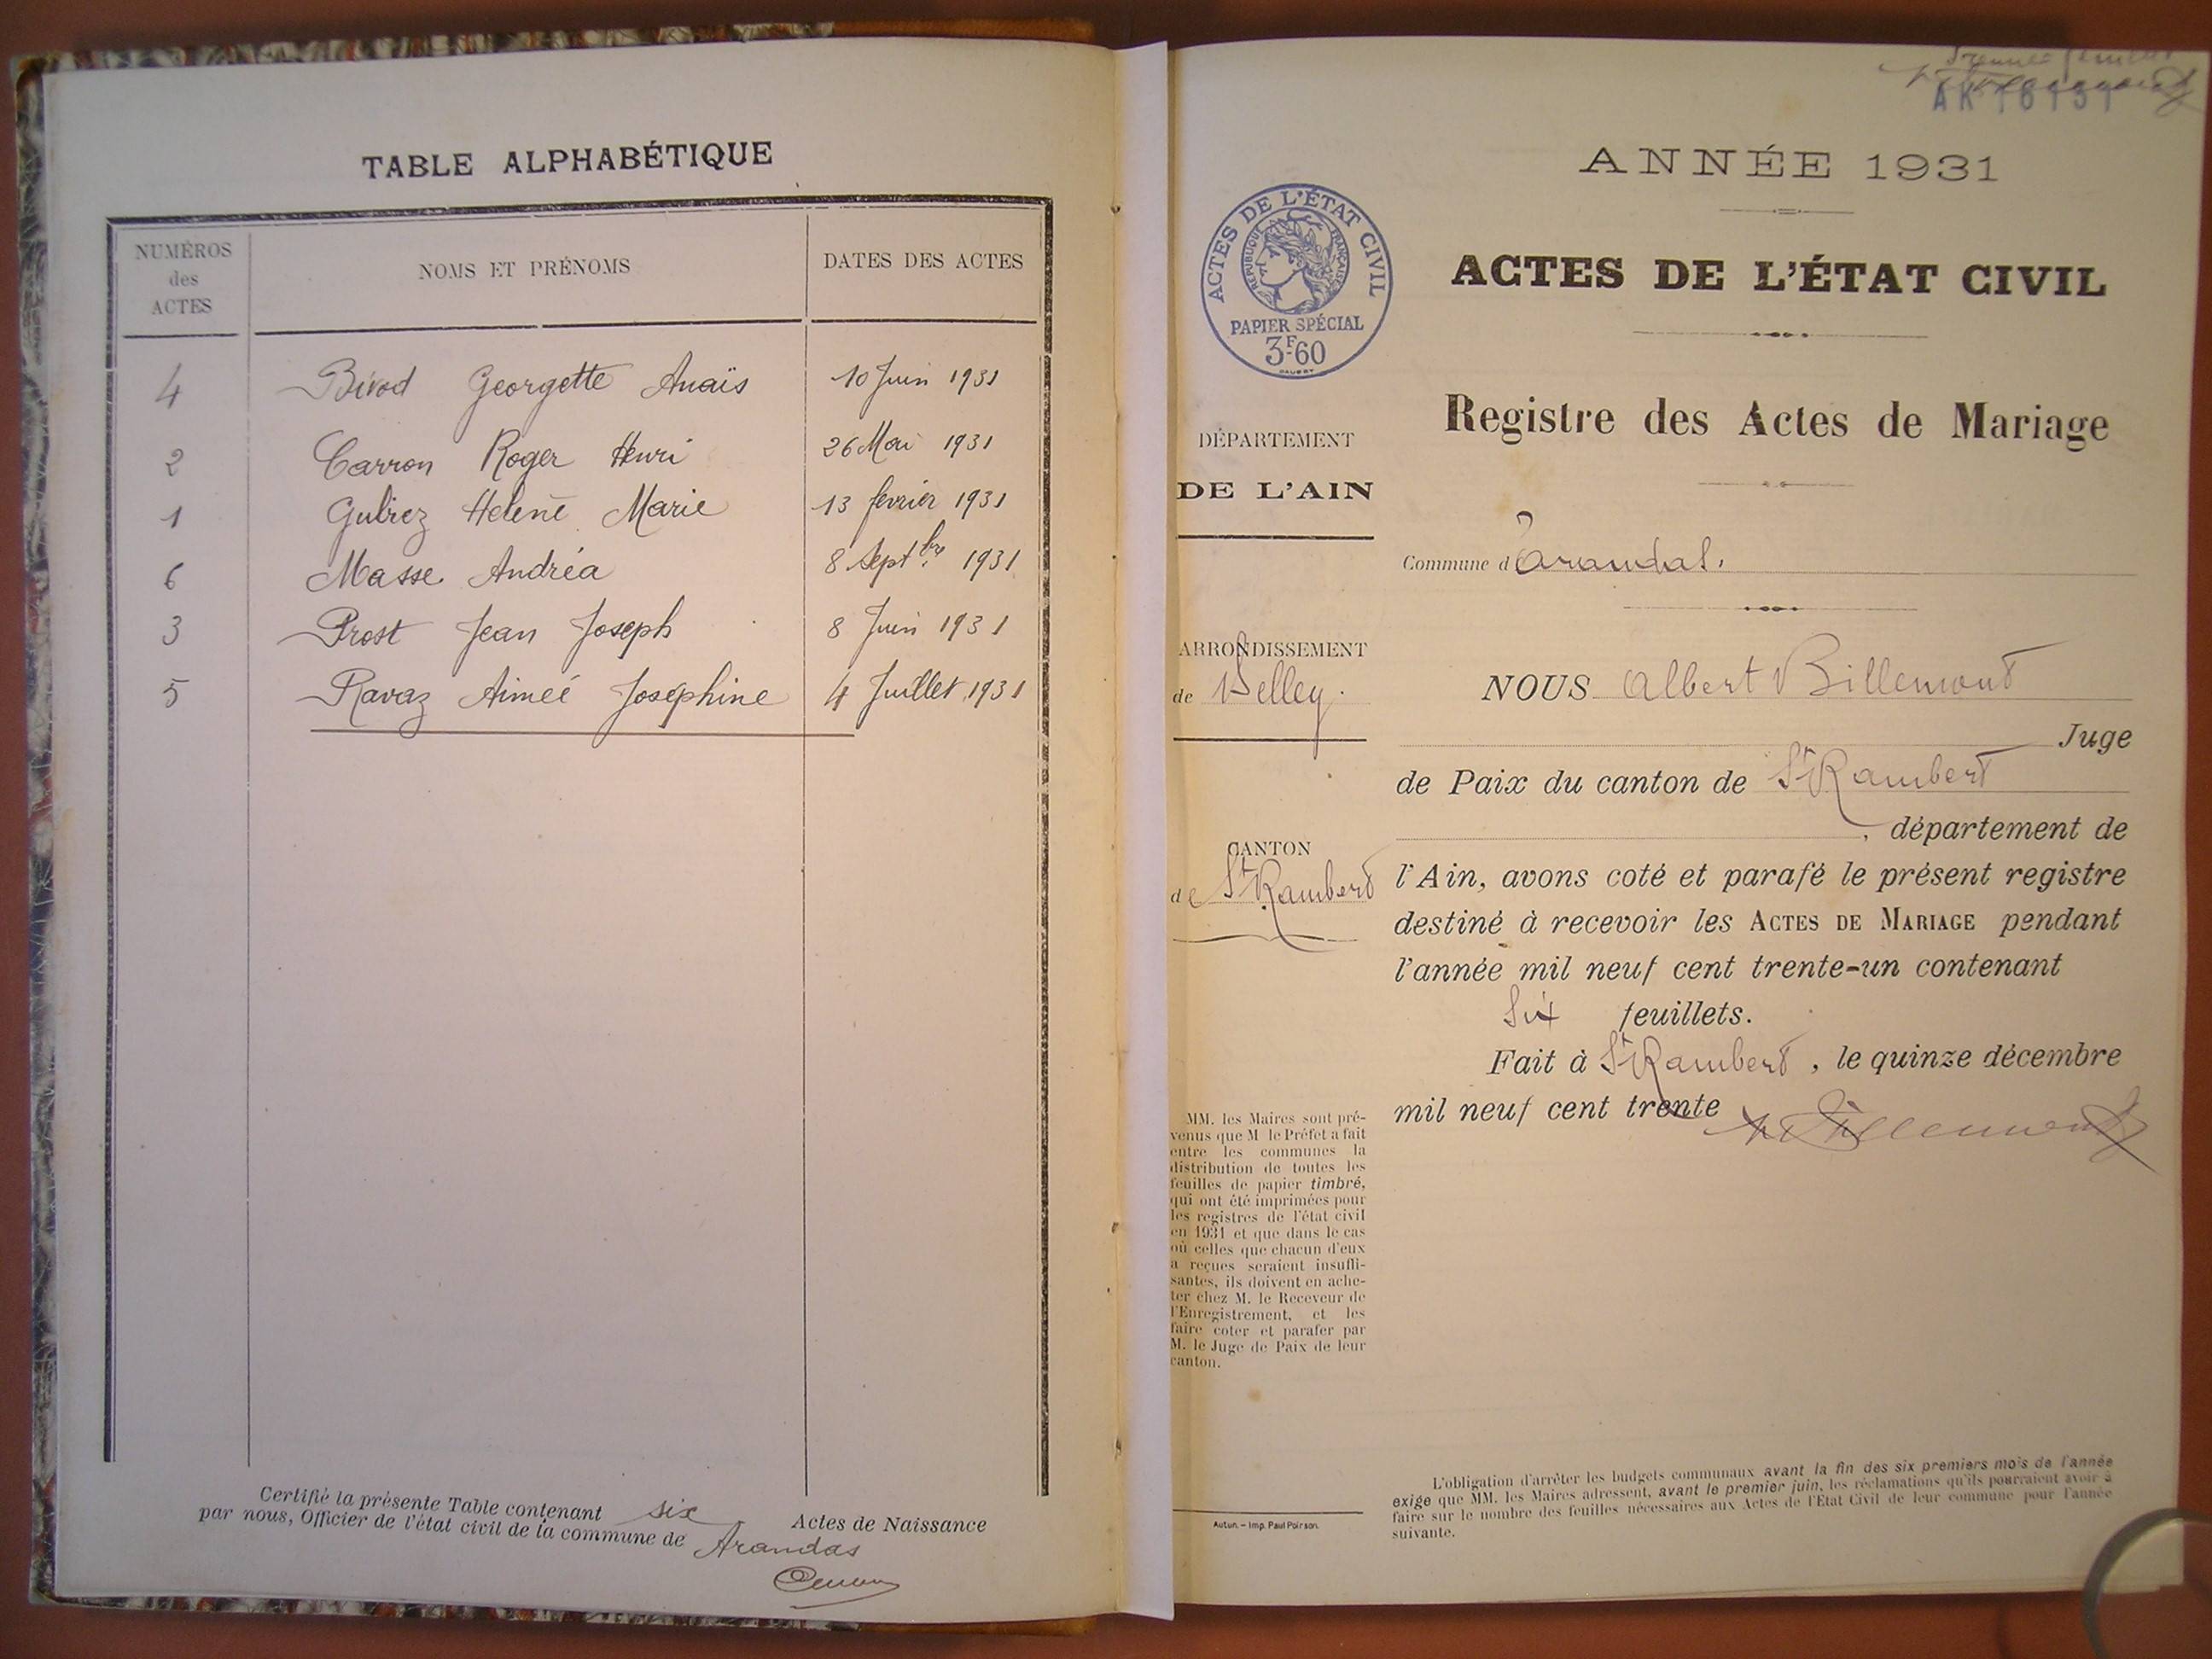 TABLE ALPHABÉTIQUE
NUMÉROS des ACTES | NOMS ET PRÉNOMS | DATES DES ACTES
4 Bivod Georgette Anaïs 10 Juin 1931
2 Carron Roger Henri 26 Mai 1931
1 Gubiez Helene Marie 13 fevrier 1931
6 Masse Andréa 8 Septbre 1931
3 Prost Jean Joseph 8 Juin 1931
5 Ravaz Aimeé Joséphine 4 Juillet 1931
Certifié la présente Table contenant six Actes de Naissance
par nous, Officier de l'état civil de la commune de Arandas
AK 16131
ANNÉE 1931
ACTES DE L'ÉTAT CIVIL
RÉPUBLIQUE FRANÇAISE
PAPIER SPÉCIAL
3F60
ACTES DE L'ÉTAT CIVIL
Registre des Actes de Mariage
DÉPARTEMENT
DE L'AIN
Commune d'Arandas.
ARRONDISSEMENT
de Belley.
NOUS Albert Billemont
Juge
de Paix du canton de St Rambert
, département de
CANTON
de St Rambert
l'Ain, avons coté et parafé le présent registre
destiné à recevoir les ACTES DE MARIAGE pendant
l'année mil neuf cent trente-un contenant
Six feuillets.
Fait à St Rambert, le quinze décembre
mil neuf cent trente
MM. les Maires sont pré-
venus que M le Préfet a fait
entre les communes la
distribution de toutes les
feuilles de papier timbré,
qui ont été imprimées pour
les registres de l'état civil
en 1931 et que dans le cas
où celles que chacun d'eux
a reçues seraient insuffi-
santes, ils doivent en ache-
ter chez M. le Receveur de
l'Enregistrement, et les
faire coter et parafer par
M. le Juge de Paix de leur
canton.
Autun. – Imp. Paul Poirson.
L'obligation d'arrêter les budgets communaux avant la fin des six premiers mois de l'année
exige que MM. les Maires adressent, avant le premier juin, les réclamations qu'ils pourraient avoir à
faire sur le nombre des feuilles nécessaires aux Actes de l'Etat Civil de leur commune pour l'année
suivante.